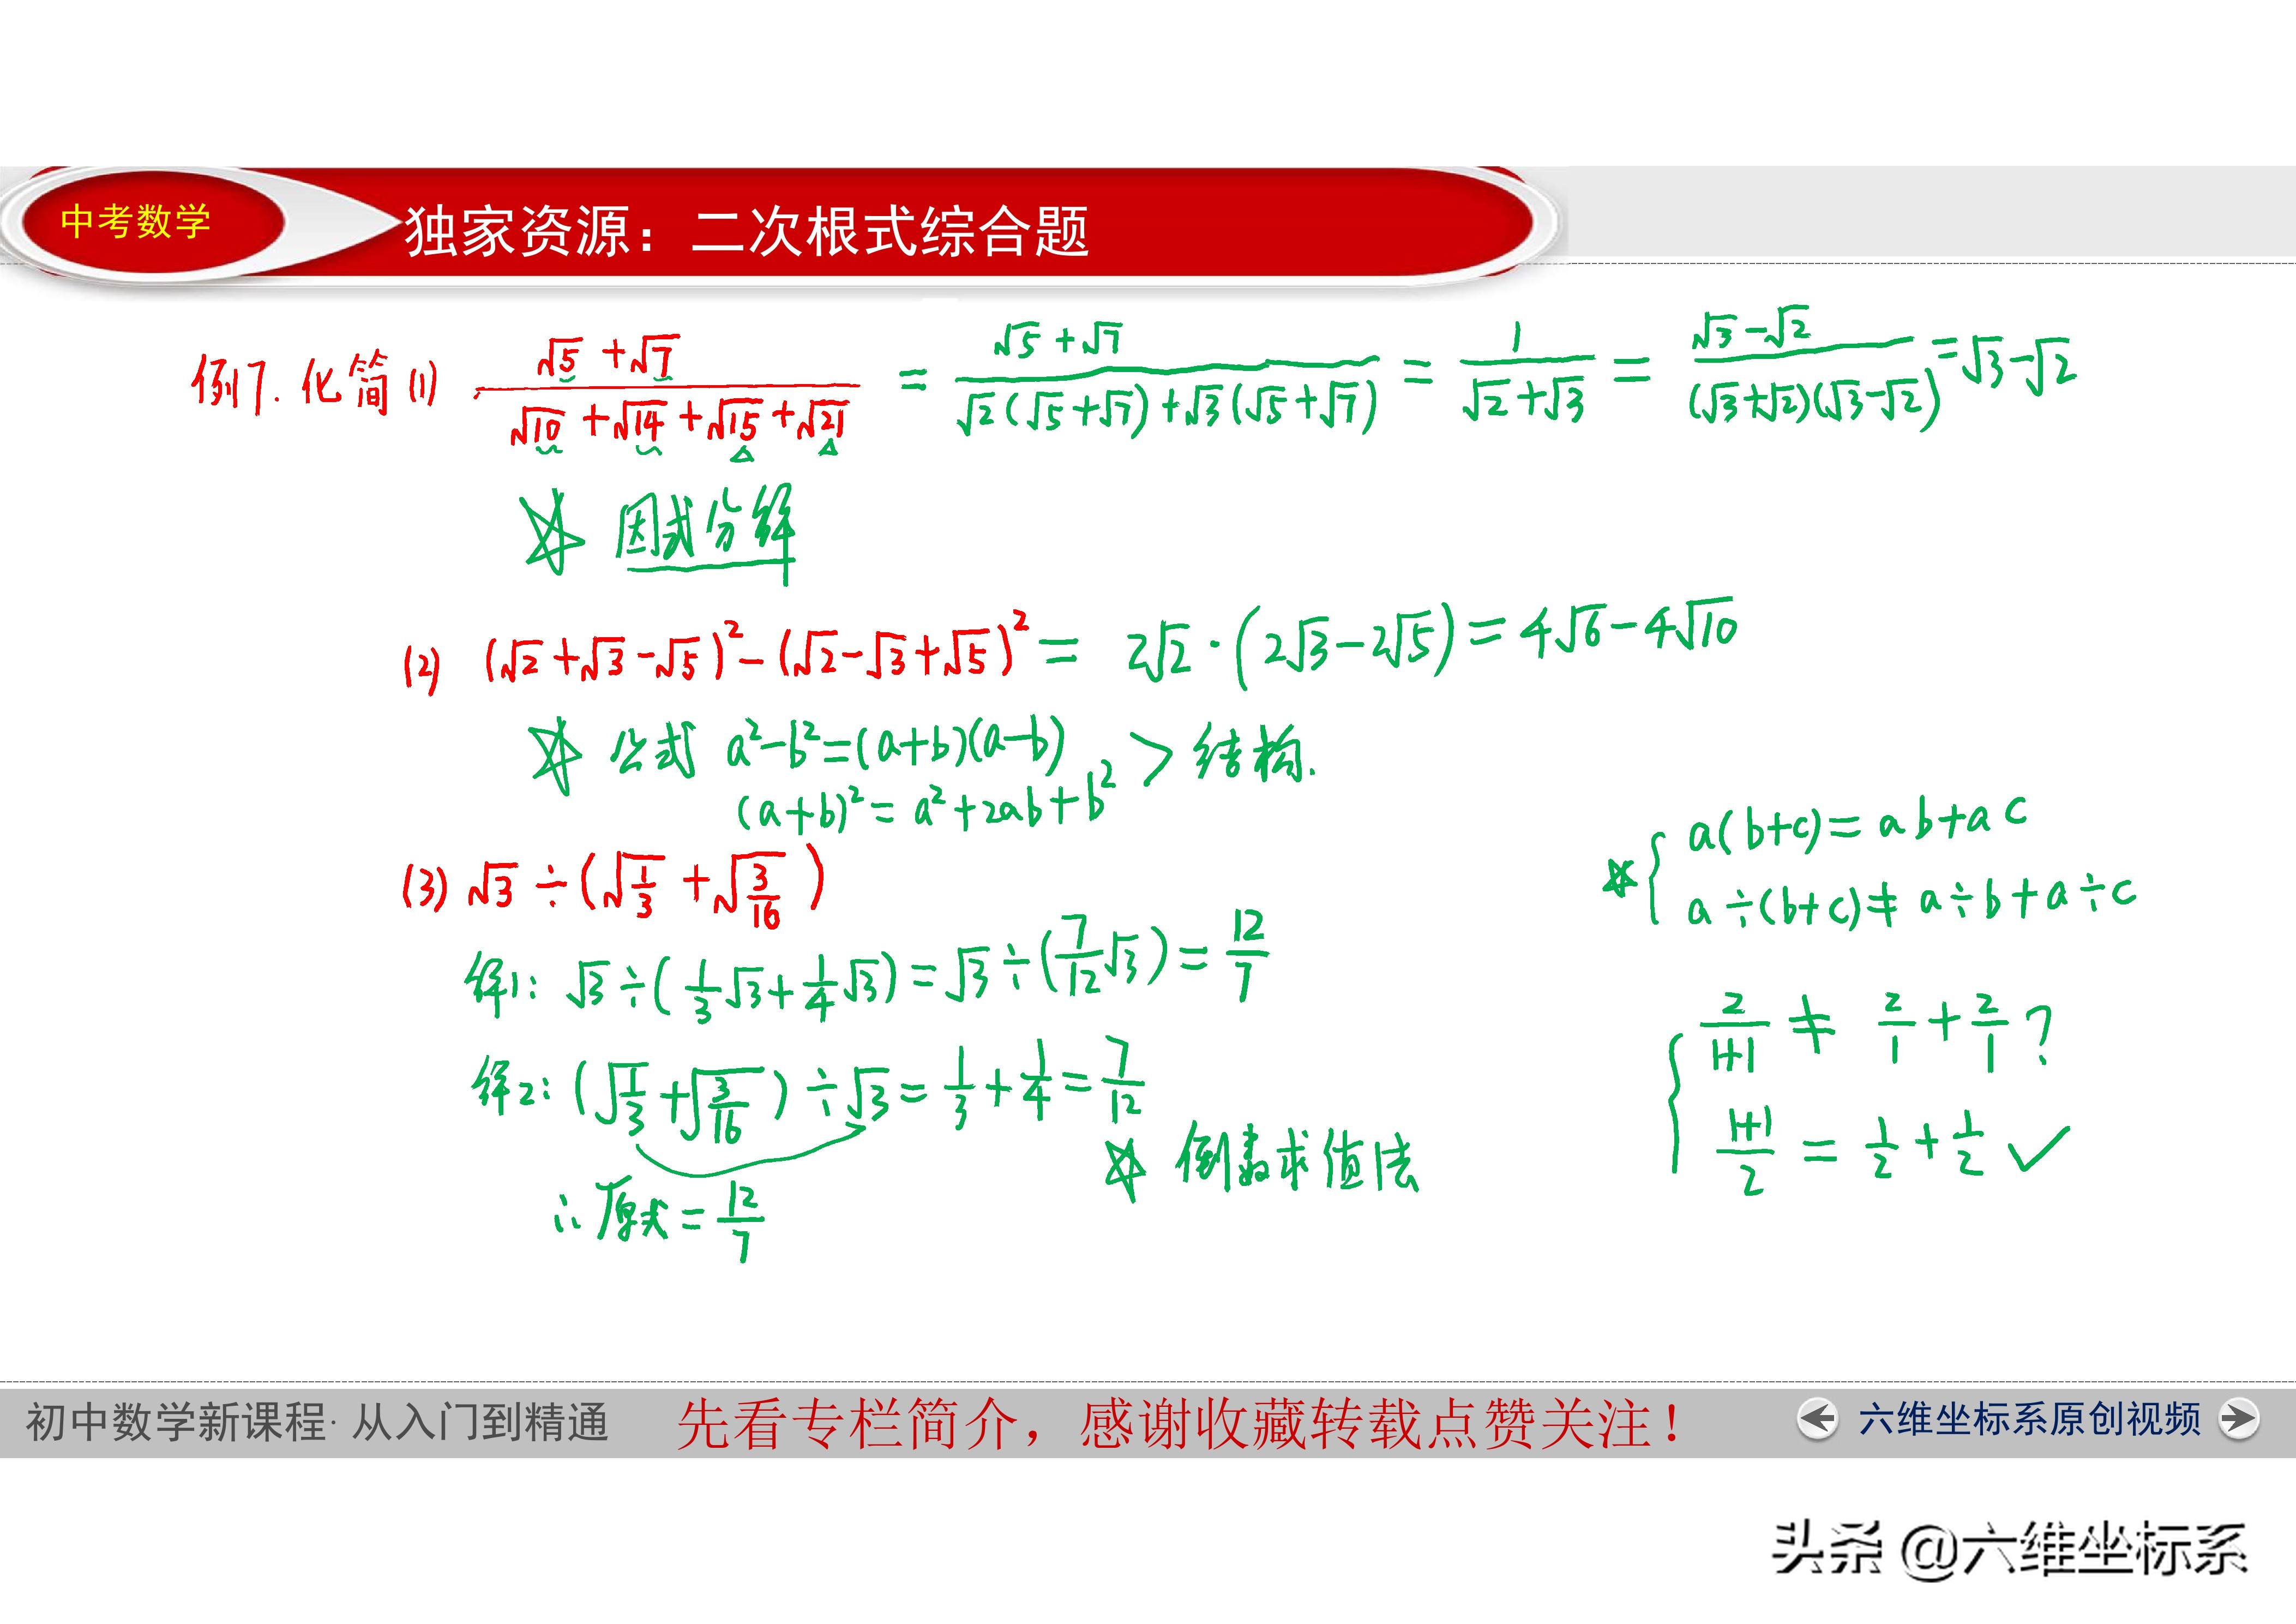 中考数学
独家资源：二次根式综合题
例7. 化简 (1) (√5+√7)/(√10+√14+√15+√21) = (√5+√7)/(√2(√5+√7)+√3(√5+√7)) = 1/(√2+√3) = (√3-√2)/((√3+√2)(√3-√2)) = √3-√2
☆ 因式分解
(2) (√2+√3-√5)²-(√2-√3+√5)² = 2√2·(2√3-2√5) = 4√6-4√10
☆ 公式 a²-b²=(a+b)(a-b) > 结构.
(a+b)²=a²+2ab+b²
(3) √3÷(√(1/3)+√(3/16))
解1: √3÷(1/3√3+1/4√3)=√3÷(7/12√3)=12/7
解2: (√(1/3)+√(3/16))÷√3=1/3+1/4=7/12
☆ 倒数求值法
∴原式=12/7
☆{ a(b+c)=ab+ac
a÷(b+c)≠a÷b+a÷c
{ 2/(1+1) ≠ 2/1+2/1 ?
(1+1)/2 = 1/2+1/2 ✓
初中数学新课程·从入门到精通
先看专栏简介，感谢收藏转载点赞关注！
六维坐标系原创视频
头条 @六维坐标系